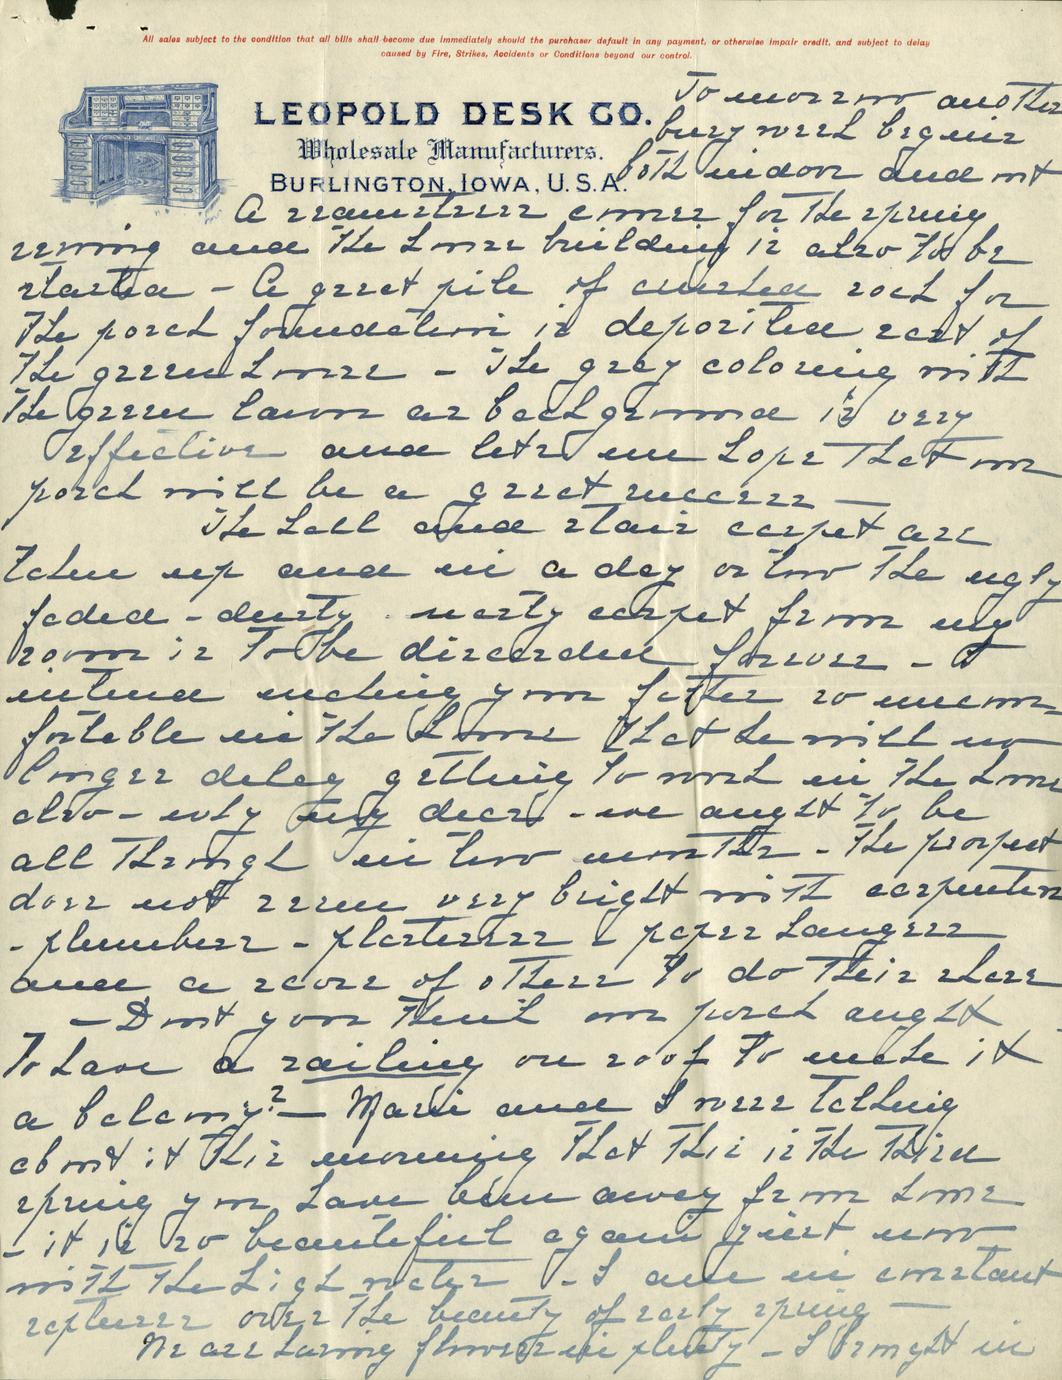 All sales subject to the condition that all bills shall become due immediately should the purchaser default in any payment, or otherwise impair credit, and subject to delay
caused by Fire, Strikes, Accidents or Conditions beyond our control.
LEOPOLD DESK CO.
Wholesale Manufacturers.
BURLINGTON, IOWA, U.S.A.
Tomorrow another
busy week begins
both indoor and out
A seamstress comes for the spring
sewing and the house building is also to be
started - A great pile of crushed rock for
the porch foundation is deposited east of
the greenhouse - The gray coloring with
the green lawn as background is very
effective and lets us hope that our
porch will be a great success -
The hall and stair carpet are
taken up and in a day or two the ugly
faded - dusty - nasty carpet from my
room is to be discarded forever - I
intend making your father so uncom-
fortable in the house that he will no
longer delay getting to work in the house
also - only my dear - we aught to be
all through in two months - The prospect
does not seem very bright with carpenters
- plumbers - plasterers & paper hangers
and a score of others to do their share
- Dont you think our porch aught
to have a railing on roof to make it
a balcony? - Marie and I were talking
about it this morning that this is the third
spring you have been away from home
- it is so beautiful again just now
with the high water - I am in constant
raptures over the beauty of early spring -
We are having flowers in plenty - I brought in